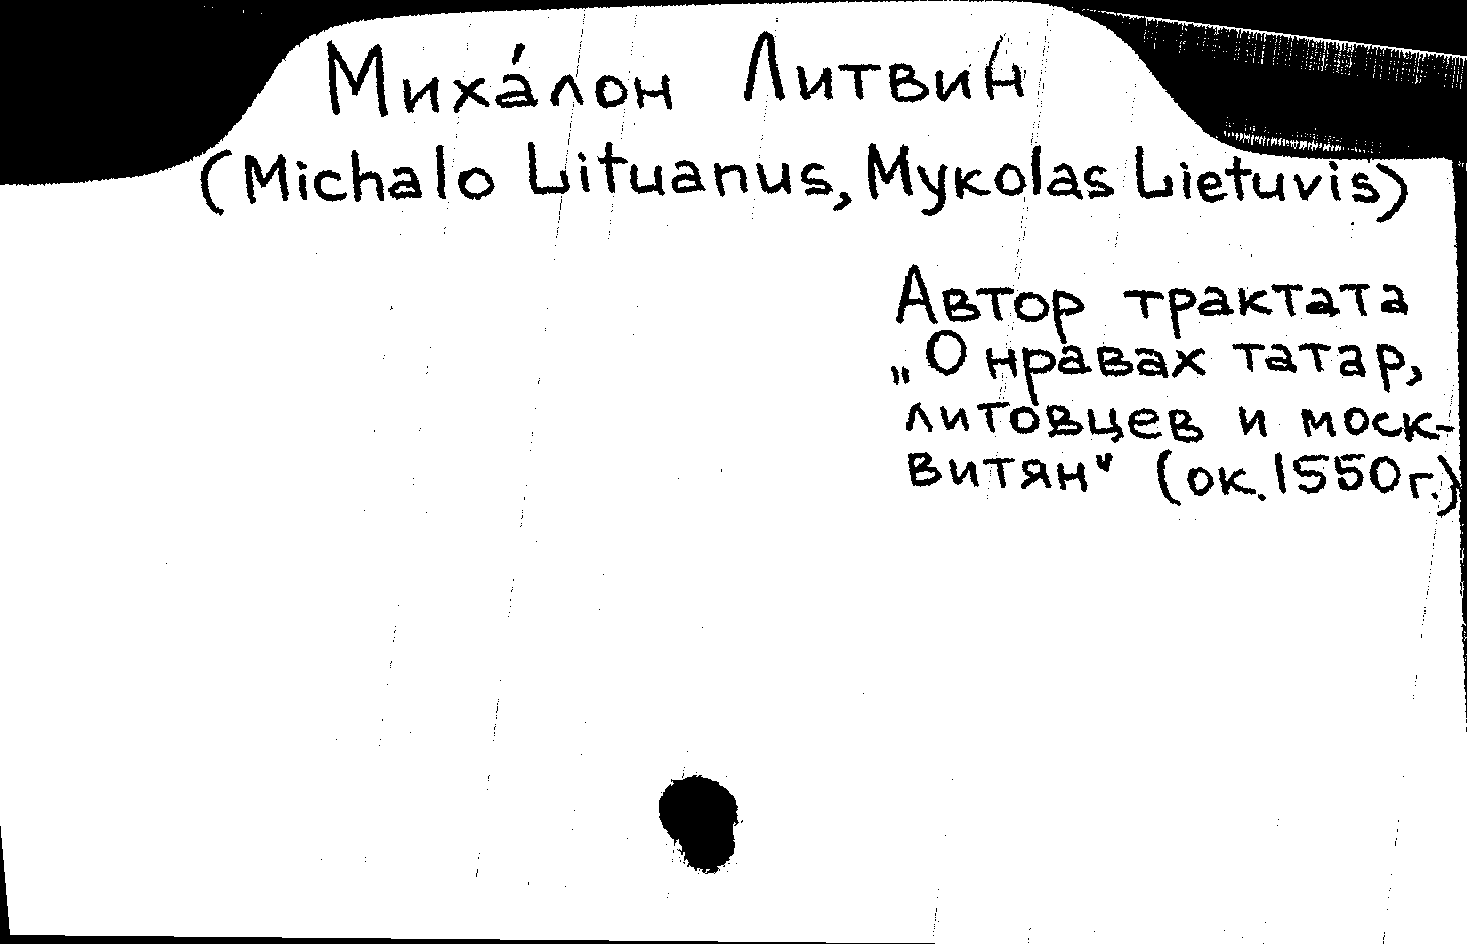 Миха́лон Литвин
(Michalo Lituanus, Mykolas Lietuvis)
Автор трактата
„О нравах татар,
литовцев и моск-
витян" (ок. 1550 г.)